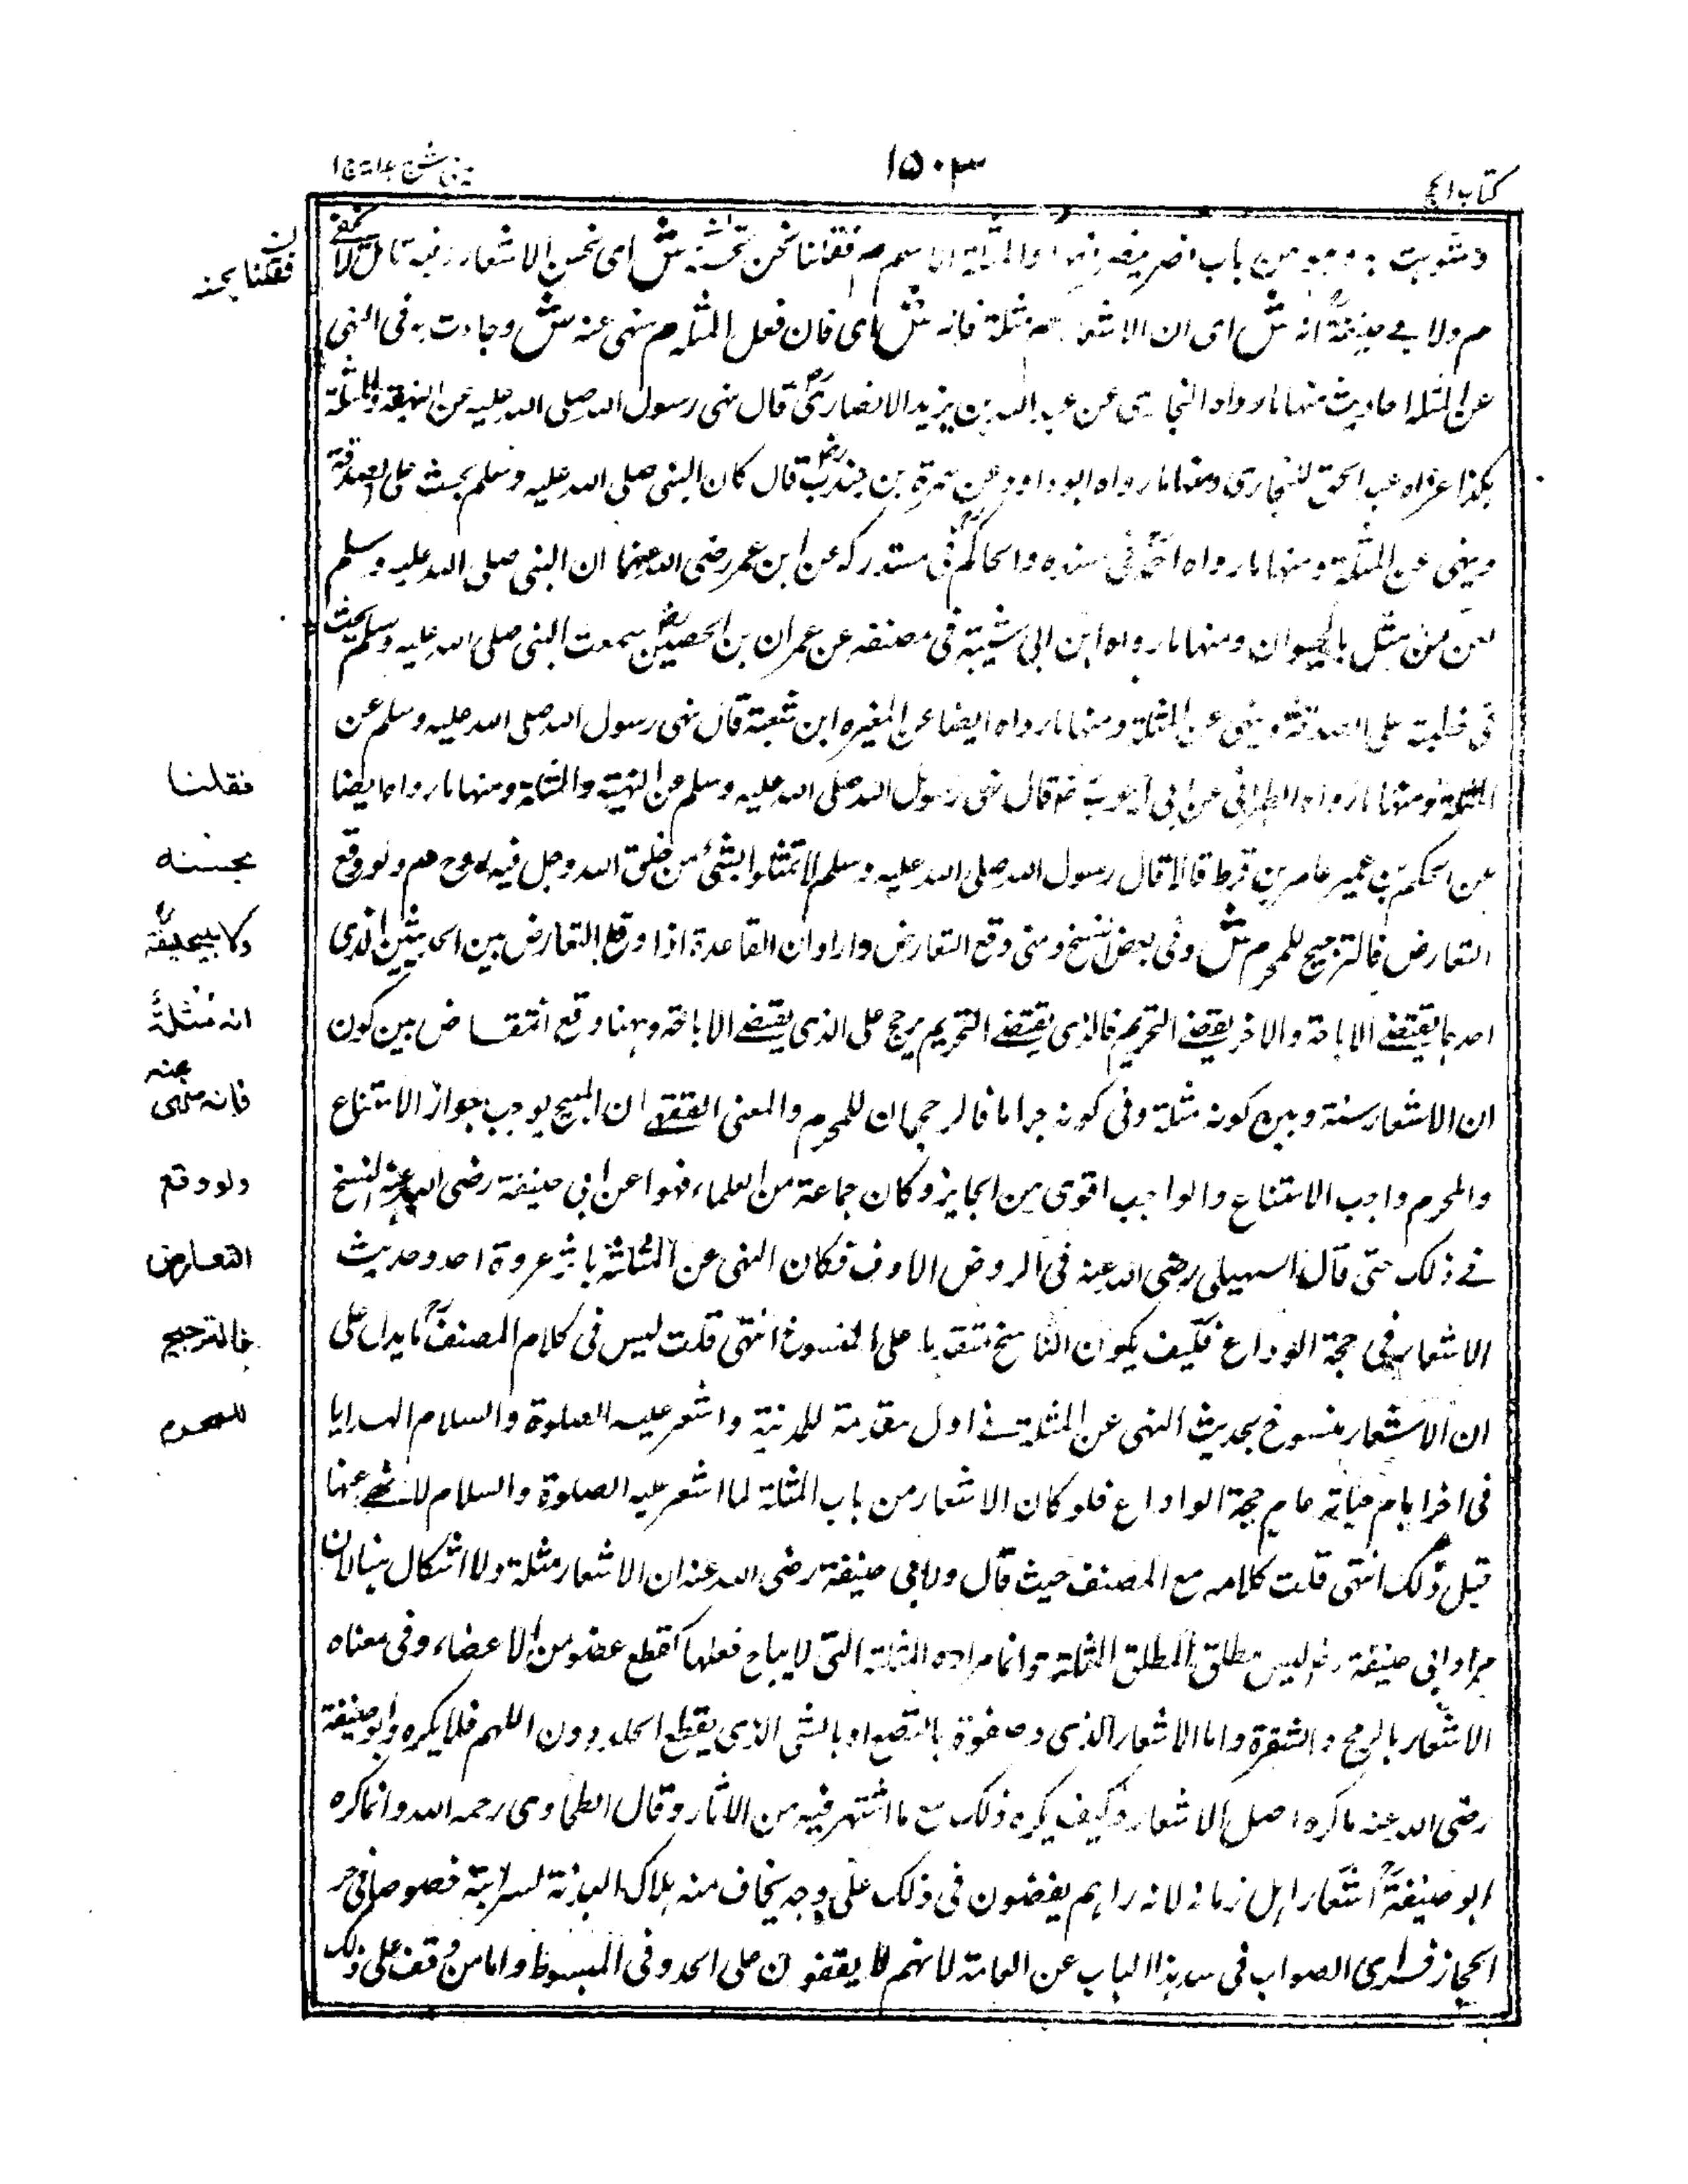 كتاب الحج
١٥٠٣
عينى شرح هداية ج ا
من باب نصر ينصر فقلنا نحن بحسنه ش اى نحسن الاشعار وفيه تامل لا يخفى
م ولابى حنيفةؒ انه ش اى ان الاشعار م مثلة فانه ش اى فان فعل المثلة م منهى عنه ش وجاءت به فى النهى
عن المثلة احاديث منها ما رواه البخارى عن عبد الله بن يزيد الانصارىؓ قال نهى رسول الله صلى الله عليه عن النهبة والمثلة
هكذا عزاه عبد الحق للبخارى ومنها ما رواه ابو داود عن سمرة بن جندبؓ قال كان النبى صلى الله عليه وسلم يحث على الصدقة
وينهى عن المثلة ومنها ما رواه احمدؒ فى مسنده والحاكمؒ فى مستدركه عن ابن عمر رضى الله عنهما ان النبى صلى الله عليه وسلم
لعن من مثل بالحيوان ومنها ما رواه ابن ابى شيبة فى مصنفه عن عمران بن الحصينؓ سمعت النبى صلى الله عليه وسلم يحث
فى خطبته على الصدقة وينهى عن المثلة ومنها ما رواه ايضا عن المغيره ابن شعبة قال نهى رسول الله صلى الله عليه وسلم عن
المثلة ومنها ما رواه الطبرانى عن ابى ايوبؓ قال نهى رسول الله صلى الله عليه وسلم عن النهبة والمثلة ومنها ما رواه ايضا
عن الحكم بن عمير عامر بن قرط قالا قال رسول الله صلى الله عليه وسلم لا تمثلوا بشئ من خلق الله وجل فيه روح م ولو وقع
التعارض فالترجيح للمحرم ش وفى بعض النسخ ومتى وقع التعارض واراد ان القاعدة اذا وقع التعارض بين الحديثين الذى
احدهما يقتضى الاباحة والاخر يقتضى التحريم فالذى يقتضى التحريم يرجح على الذى يقتضى الاباحة وههنا وقع التعارض بين كون
ان الاشعار سنة وبين كونه مثلة وفى كونه حراما فالرجحان للمحرم والمعنى الفقهى ان المبيح يوجب جواز الامتناع
والمحرم واجب الامتناع والواجب اقوى من الجايز وكان جماعة من العلماء فهموا عن ابى حنيفة رضى الله عنه النسخ
فى ذلك حتى قال السهيلى رضى الله عنه فى الروض الانف فكان النهى عن المثلة باثر غزوة احد وحديث
الاشعار فى حجة الوداع فكيف يكون الناسخ متقدما على المنسوخ انتهى قلت ليس فى كلام المصنفؒ ما يدل على
ان الاشعار منسوخ بحديث النهى عن المثلة فى اول مقدمة للمدينة واشعر عليه الصلوة والسلام الهدايا
فى اخر ايام حياته عام حجة الوداع فلو كان الاشعار من باب المثلة لما اشعر عليه الصلوة والسلام لانه نهى عنها
قبل ذلك انتهى قلت كلامه مع المصنف حيث قال ولابى حنيفة رضى الله عنه ان الاشعار مثلة ولا اشكال هنا لان
مراد ابى حنيفة رضه ليس مطلق المثلة وانما مراده المثلة التى لا يباح فعلها كقطع عضو من الاعضاء وفى معناه
الاشعار بالرمح والشفرة واما الاشعار الذى بالبضع او بالشى الذى يقطع الجلد دون اللحم فلا يكره وابو حنيفة
رضى الله عنه ما كره اصل الاشعار وكيف يكره ذلك مع ما اشتهر فيه من الاثار وقال الطحاوى رحمه الله وانما كره
ابو حنيفةؒ اشعار اهل زمانه لانه راهم يفضون فى ذلك على وجه يخاف منه هلاك البدنة لسرايته خصوصا فى حر
الحجاز فراى الصواب فى سد هذا الباب عن العامة لانهم لا يقفون على الحد وفى المبسوط واما من وقف على ذلك
فقلنا بحسنه
فقلنا
بحسنه
ولابيحنيفةؒ
انه مُثلةٌ
فانه منهى عنه
ولو وقع
التعارض
فالترجيح
للمحرم